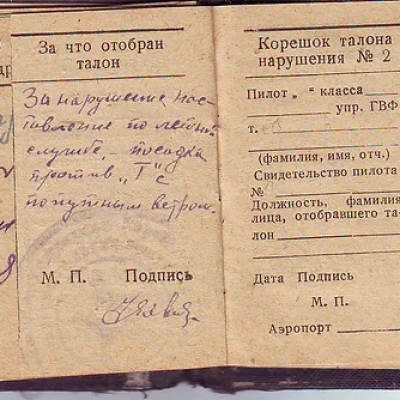 За что отобран
талон
За нарушение нас-
тавление по летной
службе, - посадка
против „Т" с
попутным ветром.
М. П. Подпись
Корешок талона
нарушения № 2
Пилот „ “ класса
упр. ГВФ
т.
(фамилия, имя, отч.)
Свидетельство пилота
№
Должность, фамилия
лица, отобравшего та-
лон
Дата Подпись
М. П.
Аэропорт